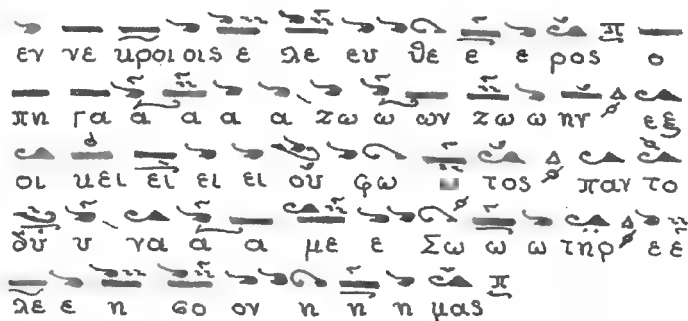 εν νε κροι οις ε λε ευ θε ε ε ρος ο
πη γα α α α α ζω ω ων ζω ω ην εξ
οι κει ει ει ει ου φω τος παν το
δυ υ να α α με ε Σω ω ω τηρ ε ε
λε ε η σο ον η η η μας